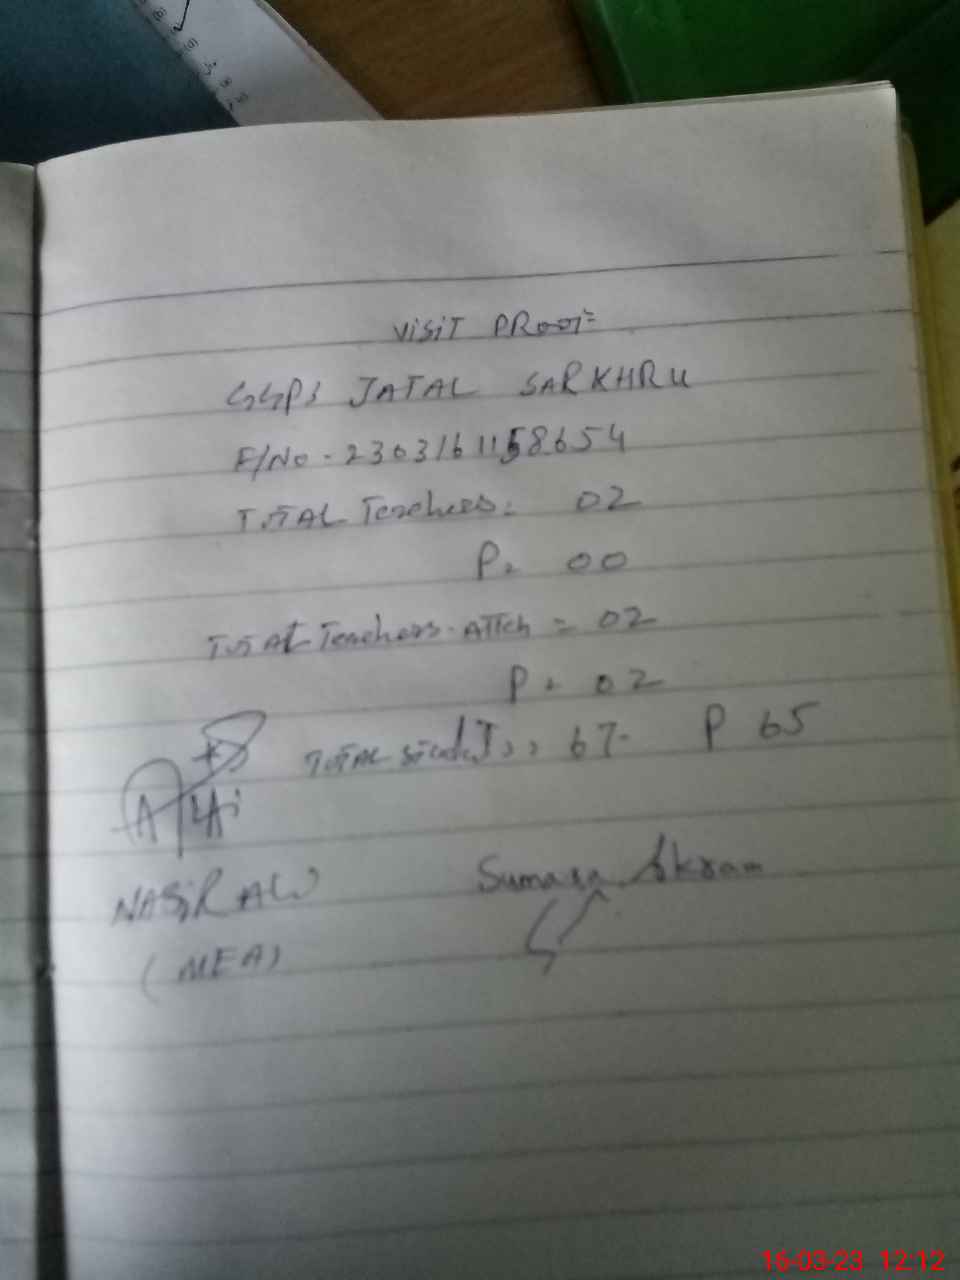 ViSiT PRooF
GGPS JATAL SARKHRU
F/No - 2303161158654
TOTAL Teachers = 02
P = 00
TOTAL Teachers - ATTch = 02
P = 02
TOTAL Students = 67 - P 65
NASiR ALi
Sumara Akram
(MEA)
16-03-23 12:12